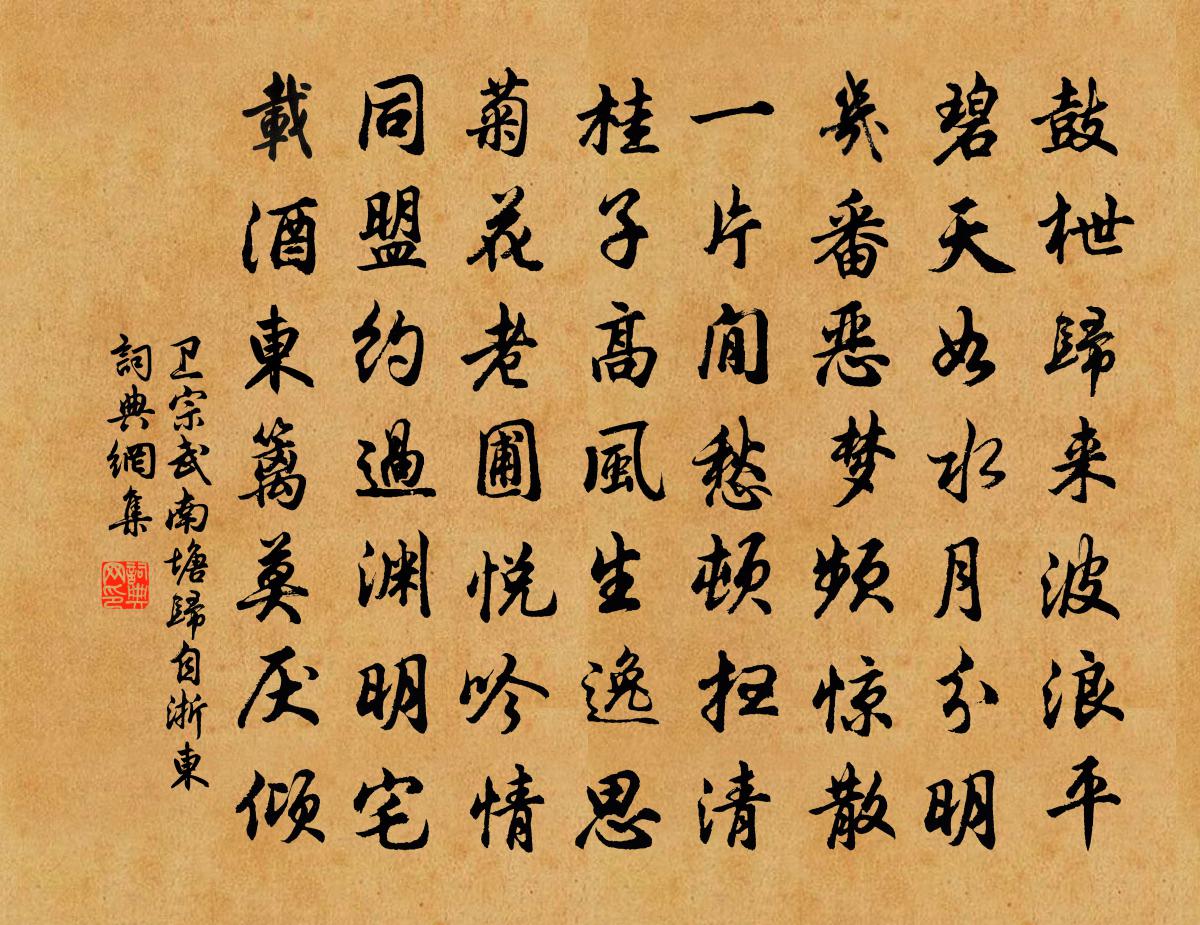 鼓枻歸来波浪平
碧天如水月分明
幾番恶梦频惊散
一片閒愁顿扫清
桂子高風生逸思
菊花老圃悦吟情
同盟约過渊明宅
載酒東籬莫厌倾
卫宗武南塘歸自浙東
詞典網集
詞典网印